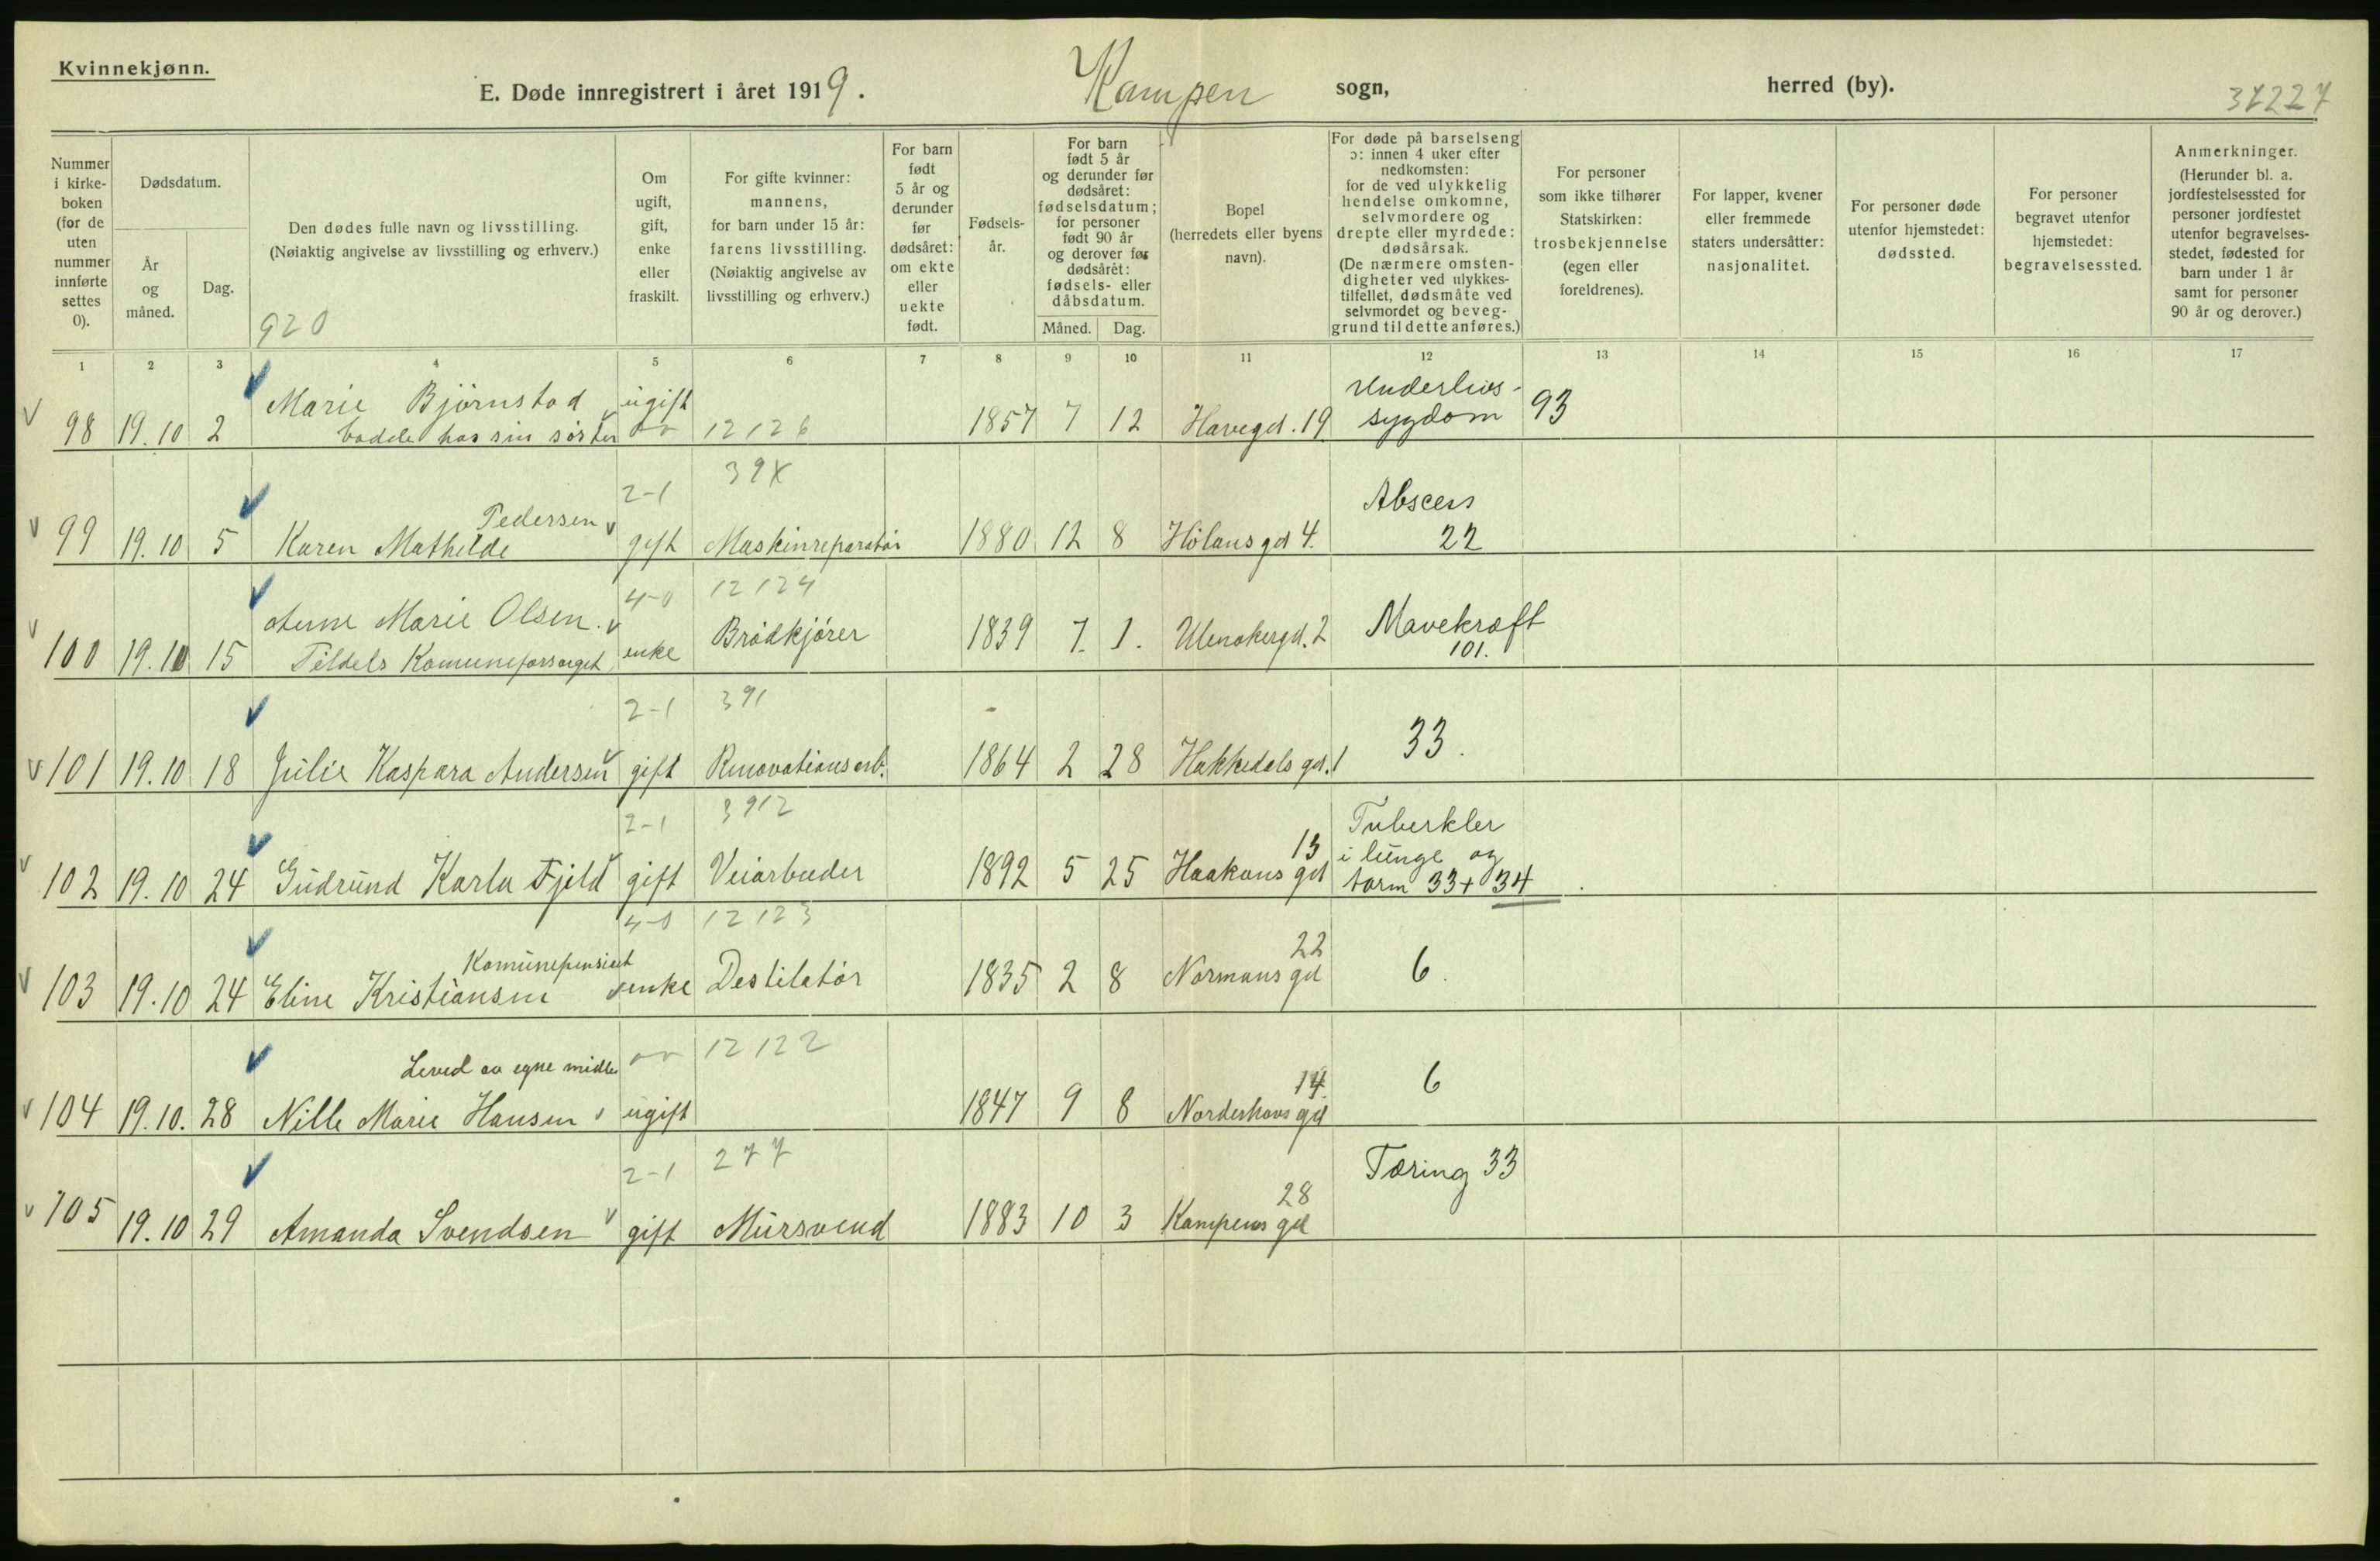 Kvinnekjønn.
E. Døde innregistrert i året 1919. Kampen sogn, herred (by). 37227
Nummer i kirkeboken (for de uten nummer innførte settes 0).
Dødsdatum.
År og måned.
Dag.
Den dødes fulle navn og livsstilling.
(Nøiaktig angivelse av livsstilling og erhverv.)
920
Om ugift, gift, enke eller fraskilt.
For gifte kvinner: mannens, for barn under 15 år: farens livsstilling. (Nøiaktig angivelse av livsstilling og erhverv.)
For barn født 5 år og derunder før dødsåret: om ekte eller uekte født.
Fødselsår.
For barn født 5 år og derunder før dødsåret: fødselsdatum; for personer født 90 år og derover før dødsåret: fødsels- eller dåbsdatum.
Måned. Dag.
Bopel (herredets eller byens navn).
For døde på barselseng ɔ: innen 4 uker efter nedkomsten: for de ved ulykkelig hendelse omkomne, selvmordere og drepte eller myrdede: dødsårsak. (De nærmere omstendigheter ved ulykkestilfellet, dødsmåte ved selvmordet og beveggrund til dette anføres.)
For personer som ikke tilhører Statskirken: trosbekjennelse (egen eller foreldrenes).
For lapper, kvener eller fremmede staters undersåtter: nasjonalitet.
For personer døde utenfor hjemstedet: dødssted.
For personer begravet utenfor hjemstedet: begravelsessted.
Anmerkninger. (Herunder bl. a. jordfestelsessted for personer jordfestet utenfor begravelsesstedet, fødested for barn under 1 år samt for personer 90 år og derover.)
1 2 3 4 5 6 7 8 9 10 11 12 13 14 15 16 17
Marie Bjørnstad ugift Underlivs-
98 19.10 2 bodde hos sin søster 12126 1857 7 12 Havegd. 19. sygdom 93
2-1 39X
Pedersen Abscess
99 19.10 5 Karen Mathilde gift Maskinreparatør 1880 12 8 Hølans gd 4. 22
4-0 12124
Anne Marie Olsen. Brødkjører Mavekræft
100 19.10 15 Tildels Komuneforsørget enke 1839 7. 1. Ulenakergd. 2 101.
2-1 391
101 19.10 18 Julie Kaspara Andersen gift Renovationsarb. 1864 2 28 Hakkedals gd. 1 33.
2-1 3912
Tuberkler
13 i lunge og
102 19.10 24 Gudrund Karla Fjeld gift Veiarbeider 1892 5 25 Haakons gd tarm 33+34
4-0 12123
Komunepensient 22
103 19.10 24 Eline Kristiansen enke Destilatør 1835 2 8 Normans gd 6.
12122
Leved av egne midler 14.
104 19.10. 28 Nille Marie Hansen ugift 1847 9 8 Norderhovs gd 6
2-1 277
28 Tæring 33
105 19.10 29 Amanda Svendsen gift Mursvend 1883 10 3 Kampens gd